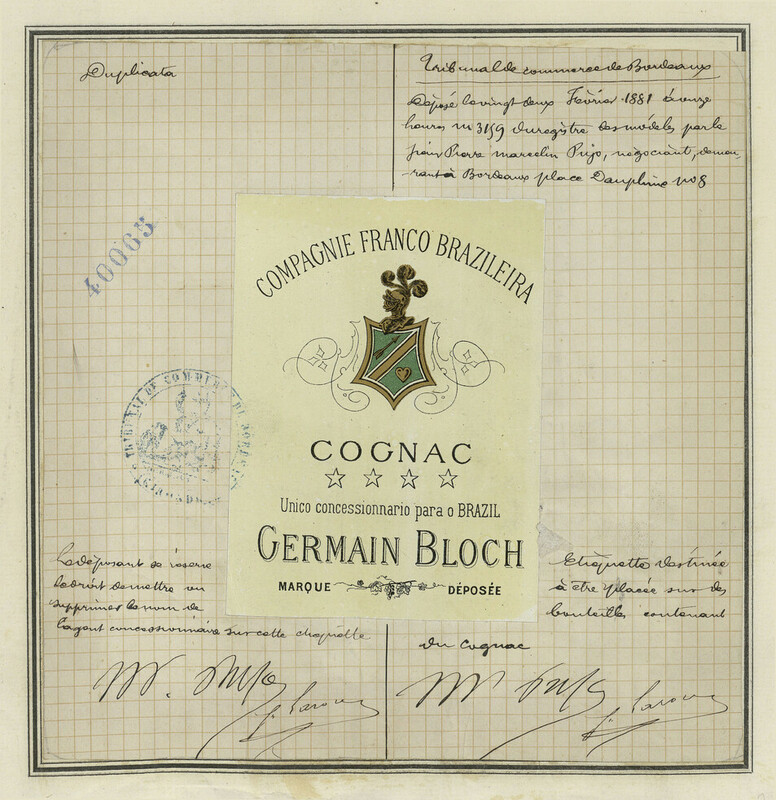 Duplicata
Tribunal de commerce de Bordeaux
Déposé le vingt deux Février 1881 à onze
heures No 3159 du registre des modèles par le
sieur Pierre Marcelin Pujo, négociant, demeu-
rant à Bordeaux place Dauphine No 8
40065
COMPAGNIE FRANCO BRAZILEIRA
TRIBUNAL DE COMMERCE DE BORDEAUX
COGNAC
Unico concessionnario para o BRAZIL
GERMAIN BLOCH
MARQUE DÉPOSÉE
Le déposant se réserve
le droit de mettre ou
supprimer le nom de
l'agent concessionnaire sur cette étiquette
Etiquette destinée
à être placée sur des
bouteilles contenant
du cognac
M. Pujo
M. Pujo